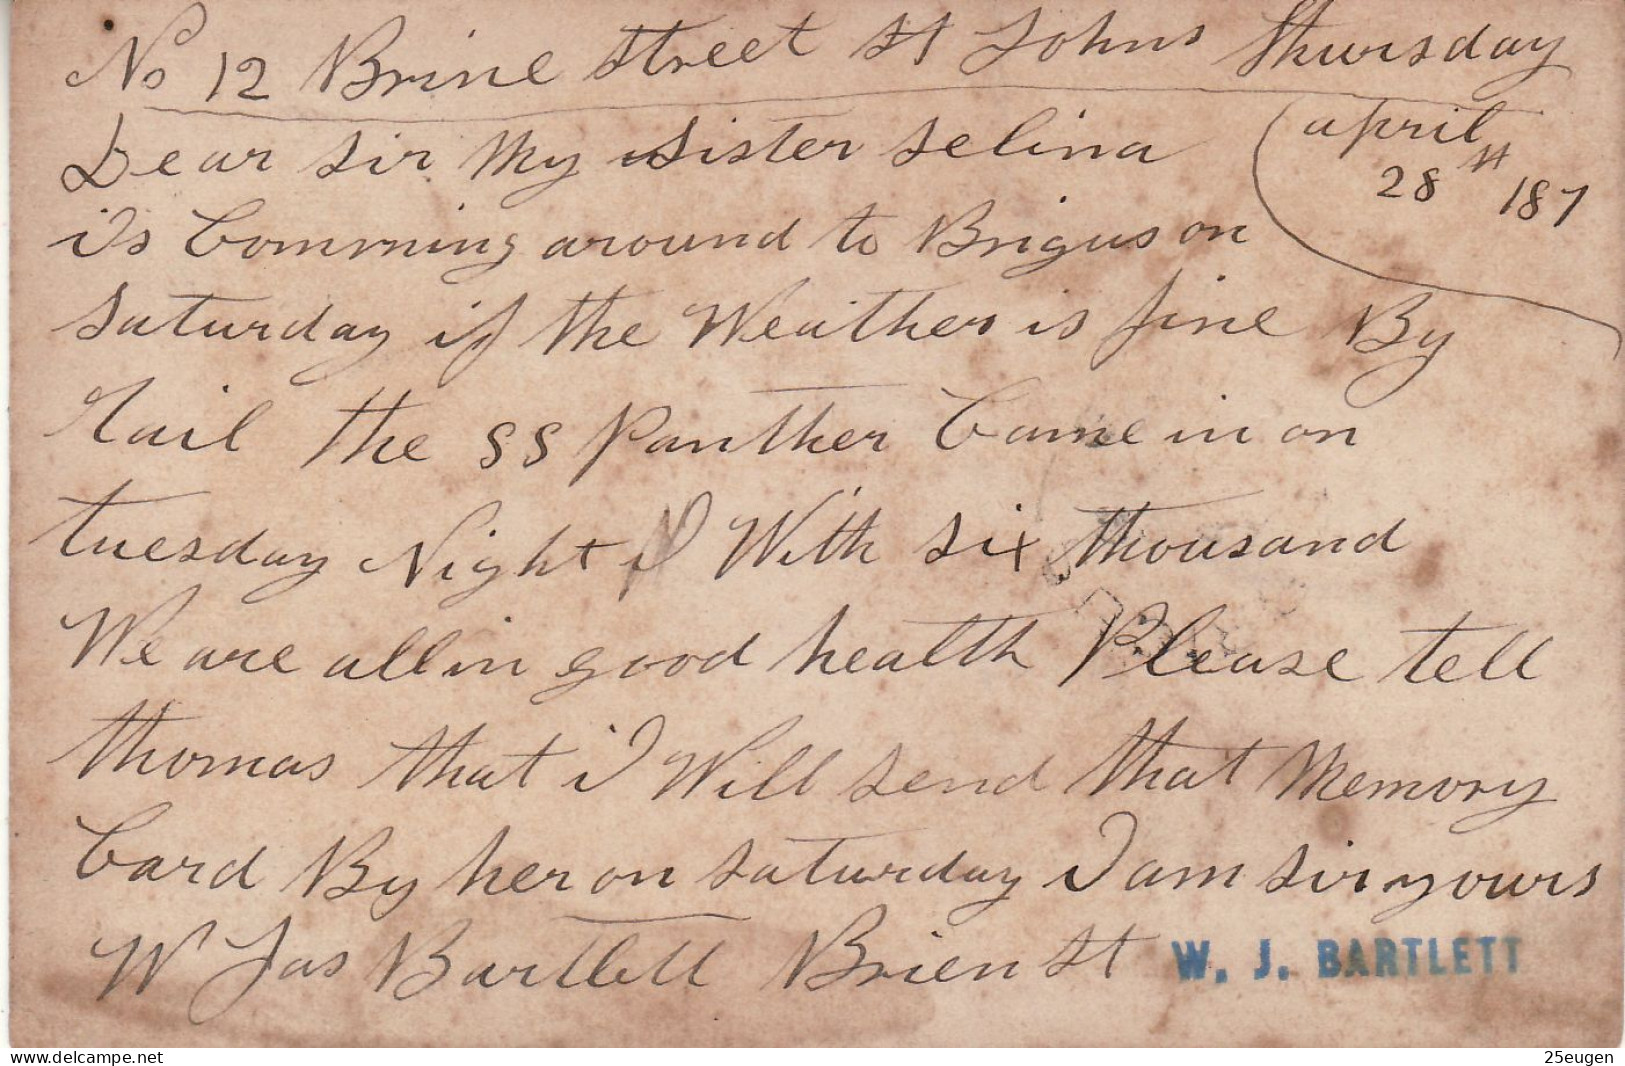 No 12 Brine Street St Johns Thursday
april
28th 187
Dear Sir My Sister Selina
is Comming around to Brigus on
Saturday if the Weather is fine By
Rail the SS Panther Came in on
tuesday Night With six thousand
We are all in good health Please tell
thomas that i Will send that Memory
Card By her on Saturday I am Sir yours
W Jas Bartlett Brien St W. J. BARTLETT
www.delcampe.net
25eugen